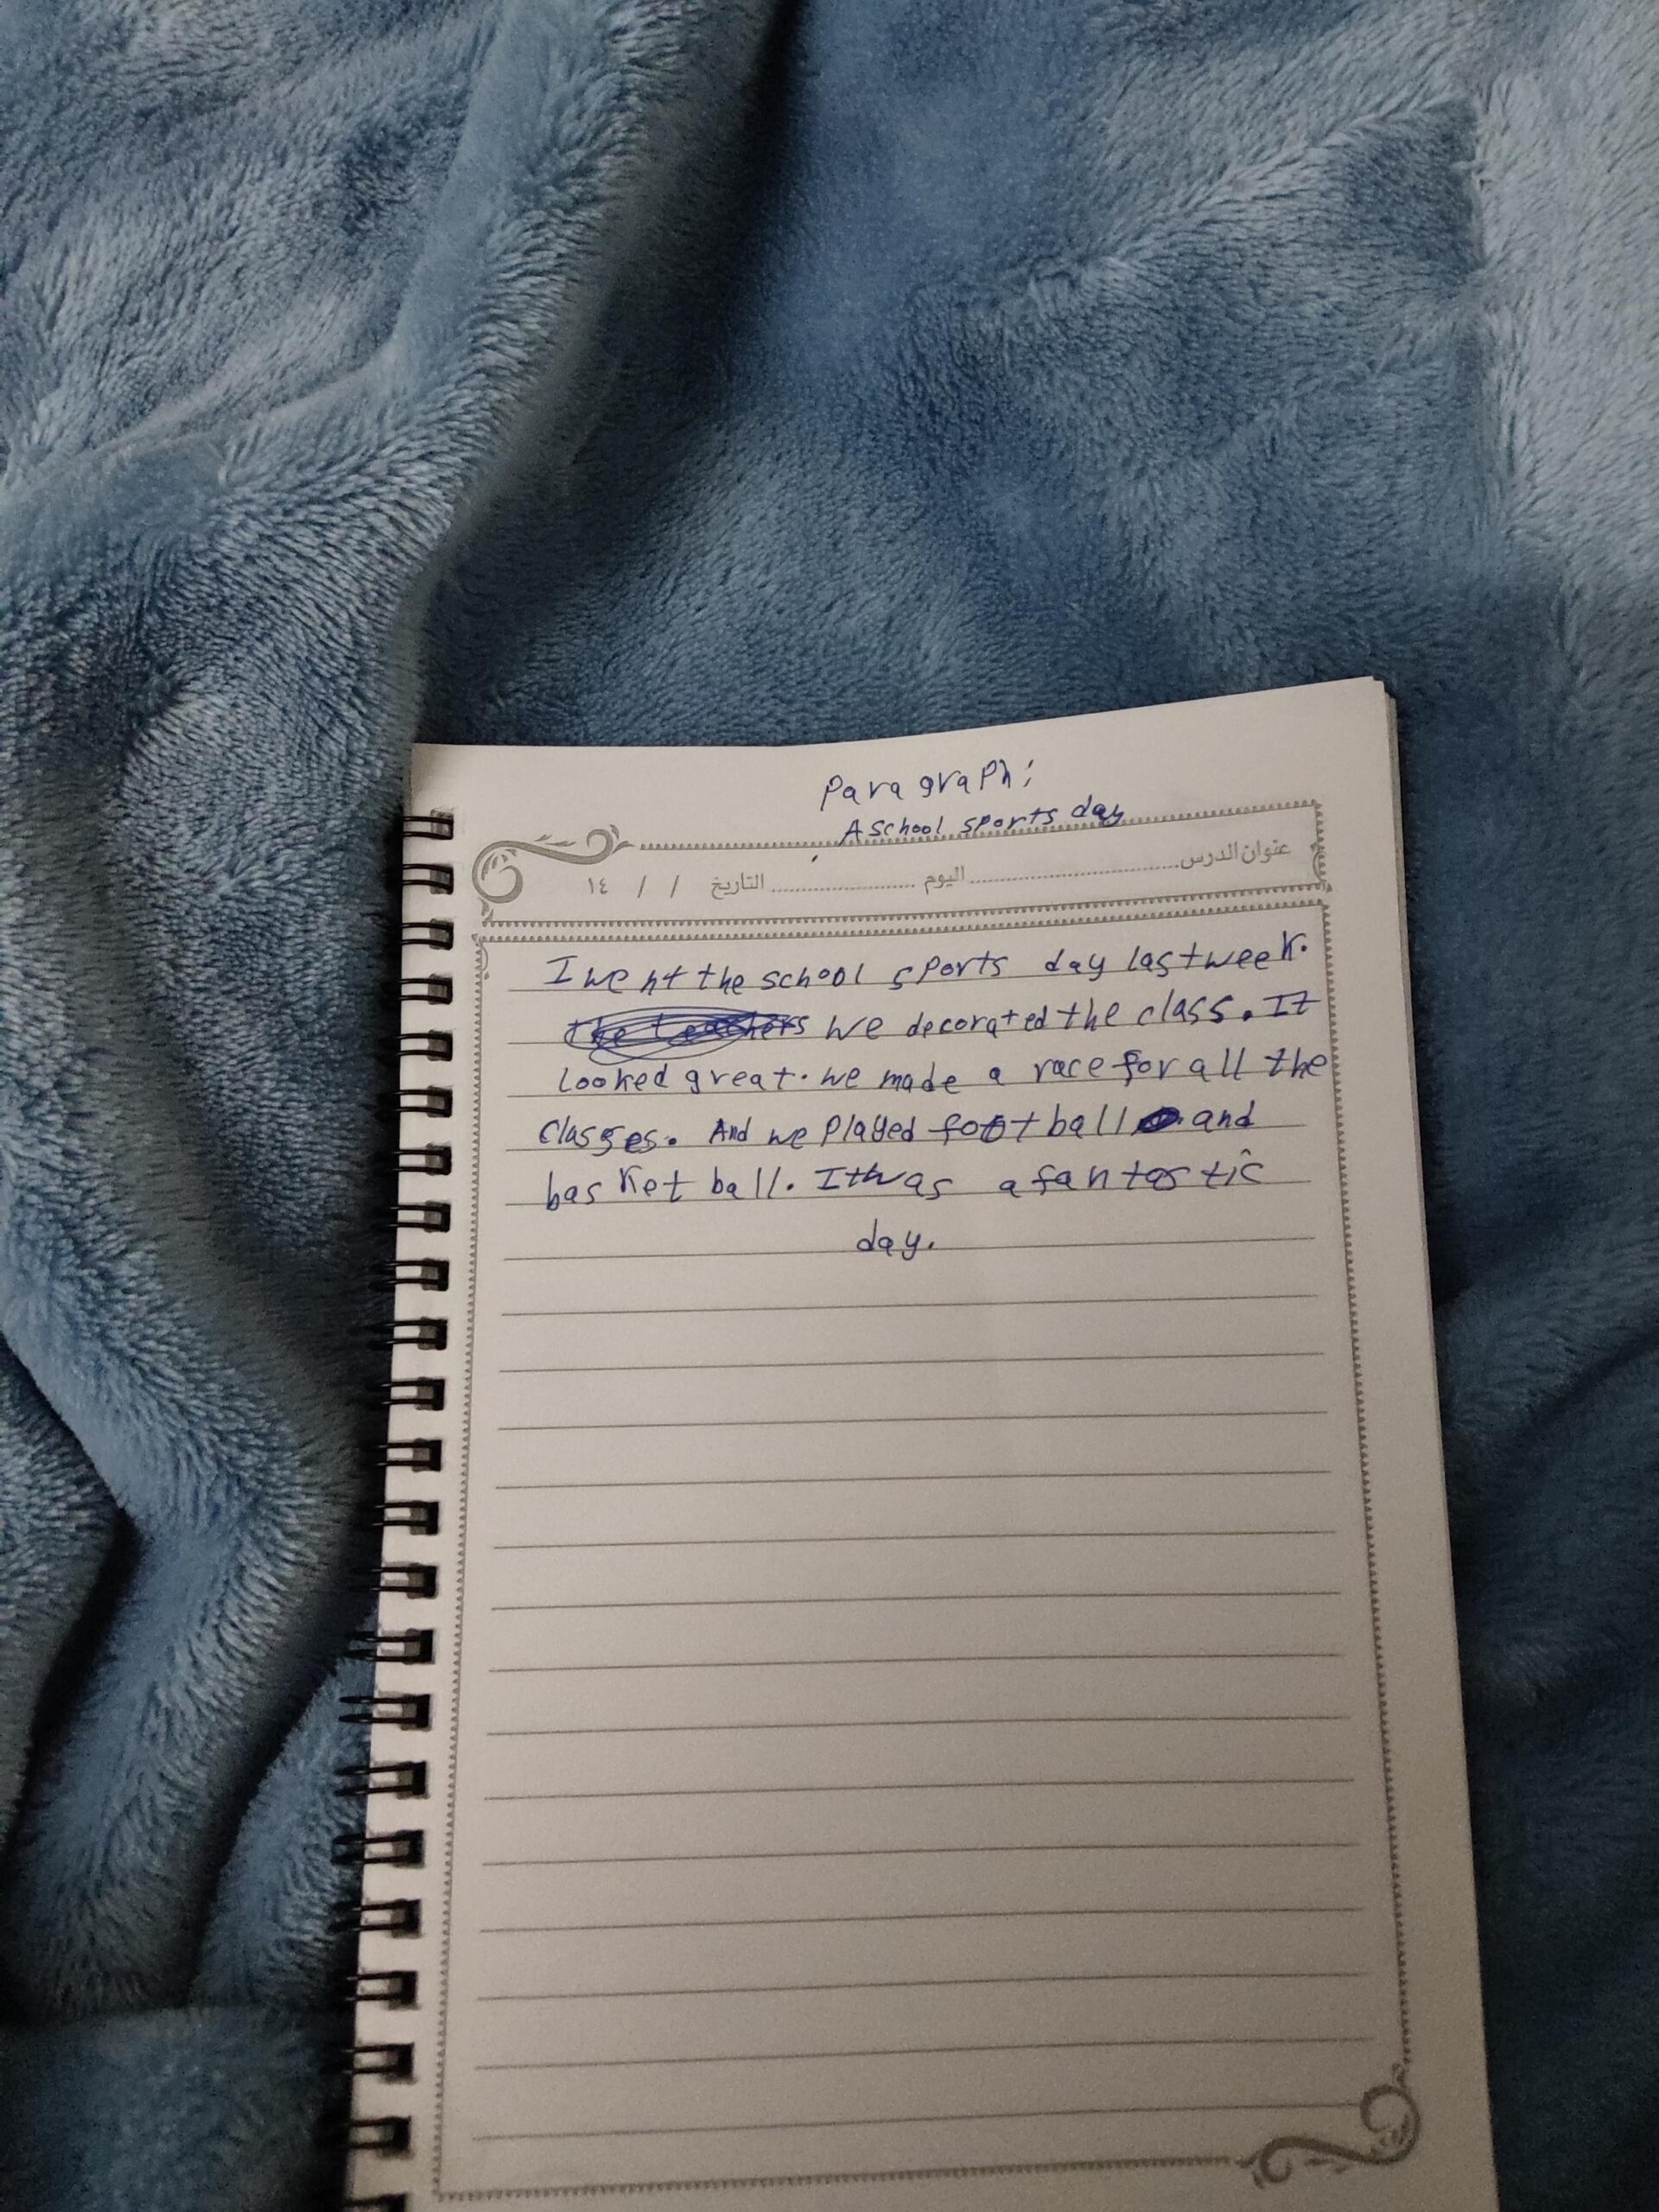 Paragraph:
A school sports day
عنوان الدرس ............ اليوم ............ التاريخ / / ١٤
I went the school sports day last week.
the teachers we decorated the class. It
looked great. we made a race for all the
classes. And we played football and
basket ball. It was a fantastic
day.